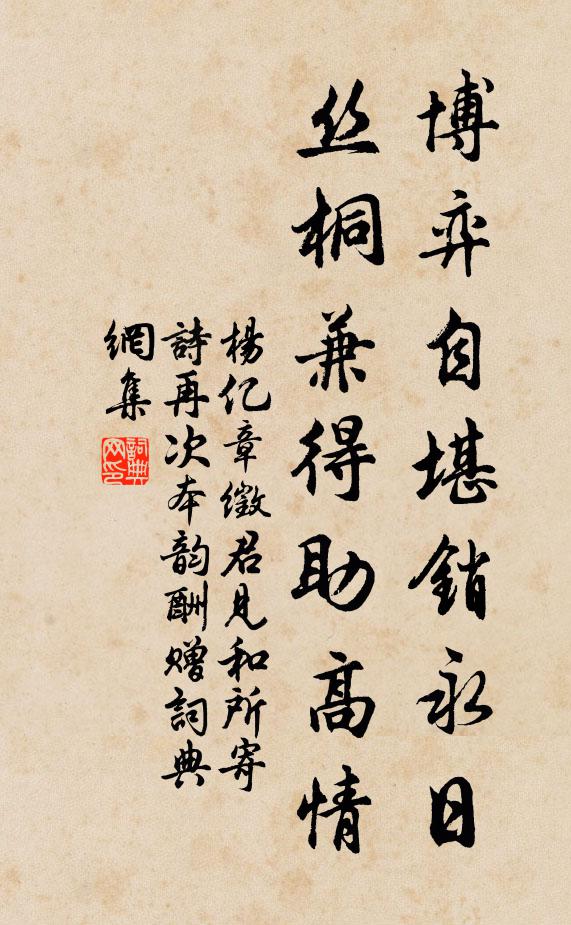 博弈自堪銷永日
丝桐兼得助高情
楊亿章徵君見和所寄
詩再次本韵酬贈詞典
網集
詞典网印